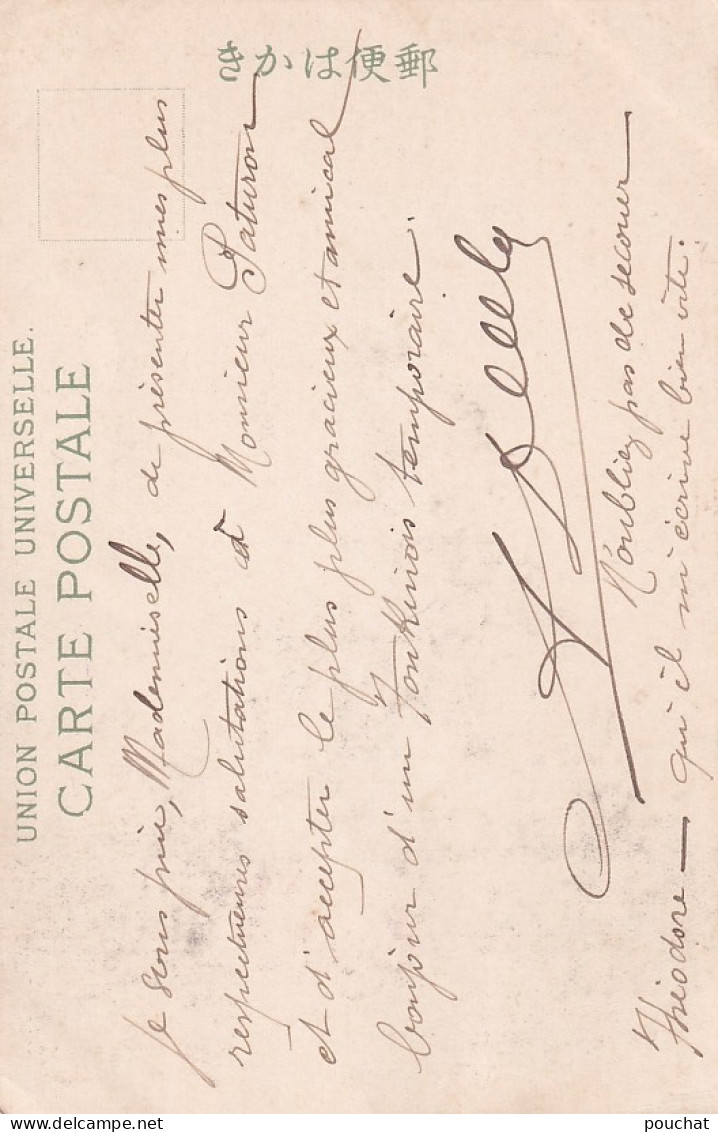 郵便はかき
UNION POSTALE UNIVERSELLE.
CARTE POSTALE
Je vous prie, Mademoiselle, de présenter mes plus
respectueuses salutations à Monsieur Paturon
et d'accepter le plus plus gracieux et amical
bonjour d'un Tonkinois temporaire.
N'oubliez pas de secouer
Théodore — qu'il m'écrive bien vite.
delcampe.net
pouchat